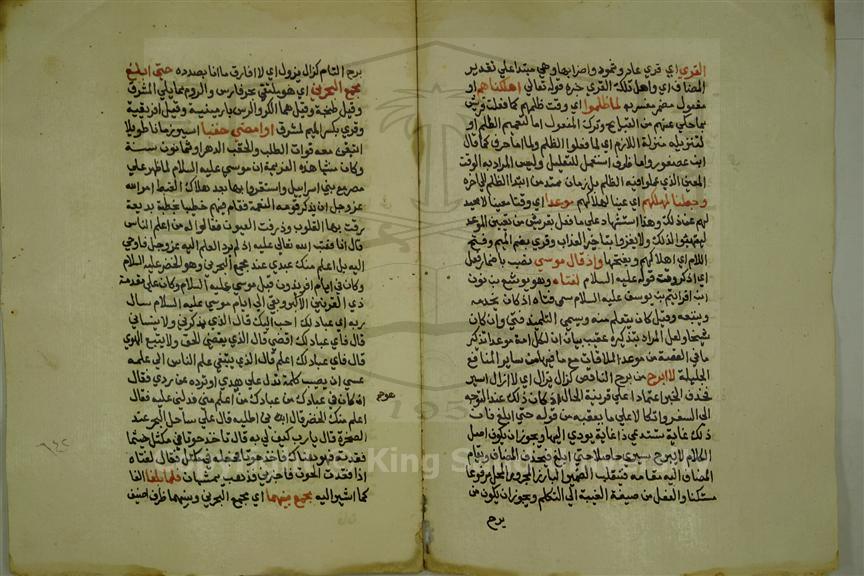 القري اي قري عاد وثمود واضرابها وهي مبتدا علي تقدير
المضاف اي واهل تلك القري خبره قوله تعالي اهلكناهم او
مفعول مضمر مفسر به لما ظلموا اي وقت ظلمهم كما فعلت قريش
بما حكي عنهم من القبايح وترك المفعول اما لتعميم الظلم او
لتنزيله منزلة اللازم اي لما فعلوا الظلم ولما اما حرف كما قال
ابن عصفور واما ظرف استعمل للتعليل وليس المراد به الوقت
المعين الذي عملوا فيه الظلم بل زمان ممتد من ابتدا الظلم الي اخره
وجعلنا لمهلكهم اي عينا لهلاكهم موعدا اي وقتا معينا لا محيد
لهم عنه ذلك وهذا استشهاد علي ما فعل بقريش من تعيين الموعد
ليتنبهوا لذلك ولا يغتروا بتاخير العذاب وقري بضم الميم وفتح
اللام اي اهلاكهم وبفتحها واذ قال موسي نصب باضمار فعل
اي اذكر وقت قوله عليه السلام لفتاه وهو يوشع بن نون
ابن افراثيم بن يوسف عليه السلام سمي فتاه اذ كان يخدمه
ويتبعه وقيل كان يتعلم منه ويسمي التلميذ فتي وان كان
شيخا ولعل المراد بتذكيره عقيب بيان ان لكل امة موعدا تذكير
ما في القصة من موعد الملاقات مع ما فيها من ساير المنافع
الجليلة لا ابرح من برح الناقص كزال يزال اي لا ازال اسير
فحذف الخبر اعتمادا علي قرينة الحال اذ كان ذلك عند التوجه
الي السفر واتكالا علي ما يعقبه من قوله حتي ابلغ فان
ذلك غاية تستدعي ذا غاية يودي اليها ويجوز ان يكون اصل
الكلام لا يبرح سيري حاصلا حتي ابلغ فيحذف المضاف ويقام
المضاف اليه مقامه فينقلب الضمير البارز المجرور المحل مرفوعا
مستكنا والفعل من صيغة الغيبة الي التكلم ويجوز ان يكون من
برح
برح التام كزال يزول اي لا افارق ما انا بصدده حتي ابلغ
مجمع البحرين اي هو ملتقي بحر فارس والروم مما يلي المشرق
وقيل طنجة وقيل هما الكر والرس بارمينية وقيل افريقية
وقري بكسر الميم كمشرق او امضي حقبا اسير زمانا طويلا
اتيقن معه فوات الطلب والحقب الدهر او ثمانون سنة
وكان منشا هذه العزيمة ان موسي عليه السلام لما ظهر علي
مصر مع بني اسراييل واستقروا بها بعد هلاك القبط امره الله
عز وجل ان يذكر قومه النعمة فقام فيهم خطيبا بخطبة بديعة
رقت بها القلوب وذرفت العيون فقالوا له من اعلم الناس
قال انا فعتب الله تعالي عليه اذ لم يرد العلم اليه عز وجل فاوحي
اليه بل اعلم منك عبدي عند مجمع البحرين وهو الخضر عليه السلام
وكان في ايام افريدون قبل موسي عليه السلام وكان علي مقدمة
ذي القرنين الاكبر وبقي الي ايام موسي عليه السلام سال
ربه اي عبادك احب اليك قال الذي يذكرني ولا ينساني
قال فاي عبادك اقضي قال الذي يقضي للحق ولا يتبع الهوي
قال فاي عبادك اعلم قال الذي يبتغي علم الناس الي علمه
عسي ان يصيب كلمة تدل علي هدي او ترده عن ردي فقال
ان كان في عبادك من عبادك من اعلم مني فدلني عليه فقال
اعلم منك الخضر قال اين اطلبه قال علي ساحل البحر عند
الصخرة قال يا رب كيف لي به قال تاخذ حوتا في مكتل فحيثما
فقدته فهو هناك فاخذ حوتا فجعله في مكتل فقال لفتاه
اذا فقدت الحوت فاخبرني فذهب يمشيان فلما بلغا الفا
كما اشير اليه مجمع بينهما اي مجمع البحرين وبينهما ظرف اضيف